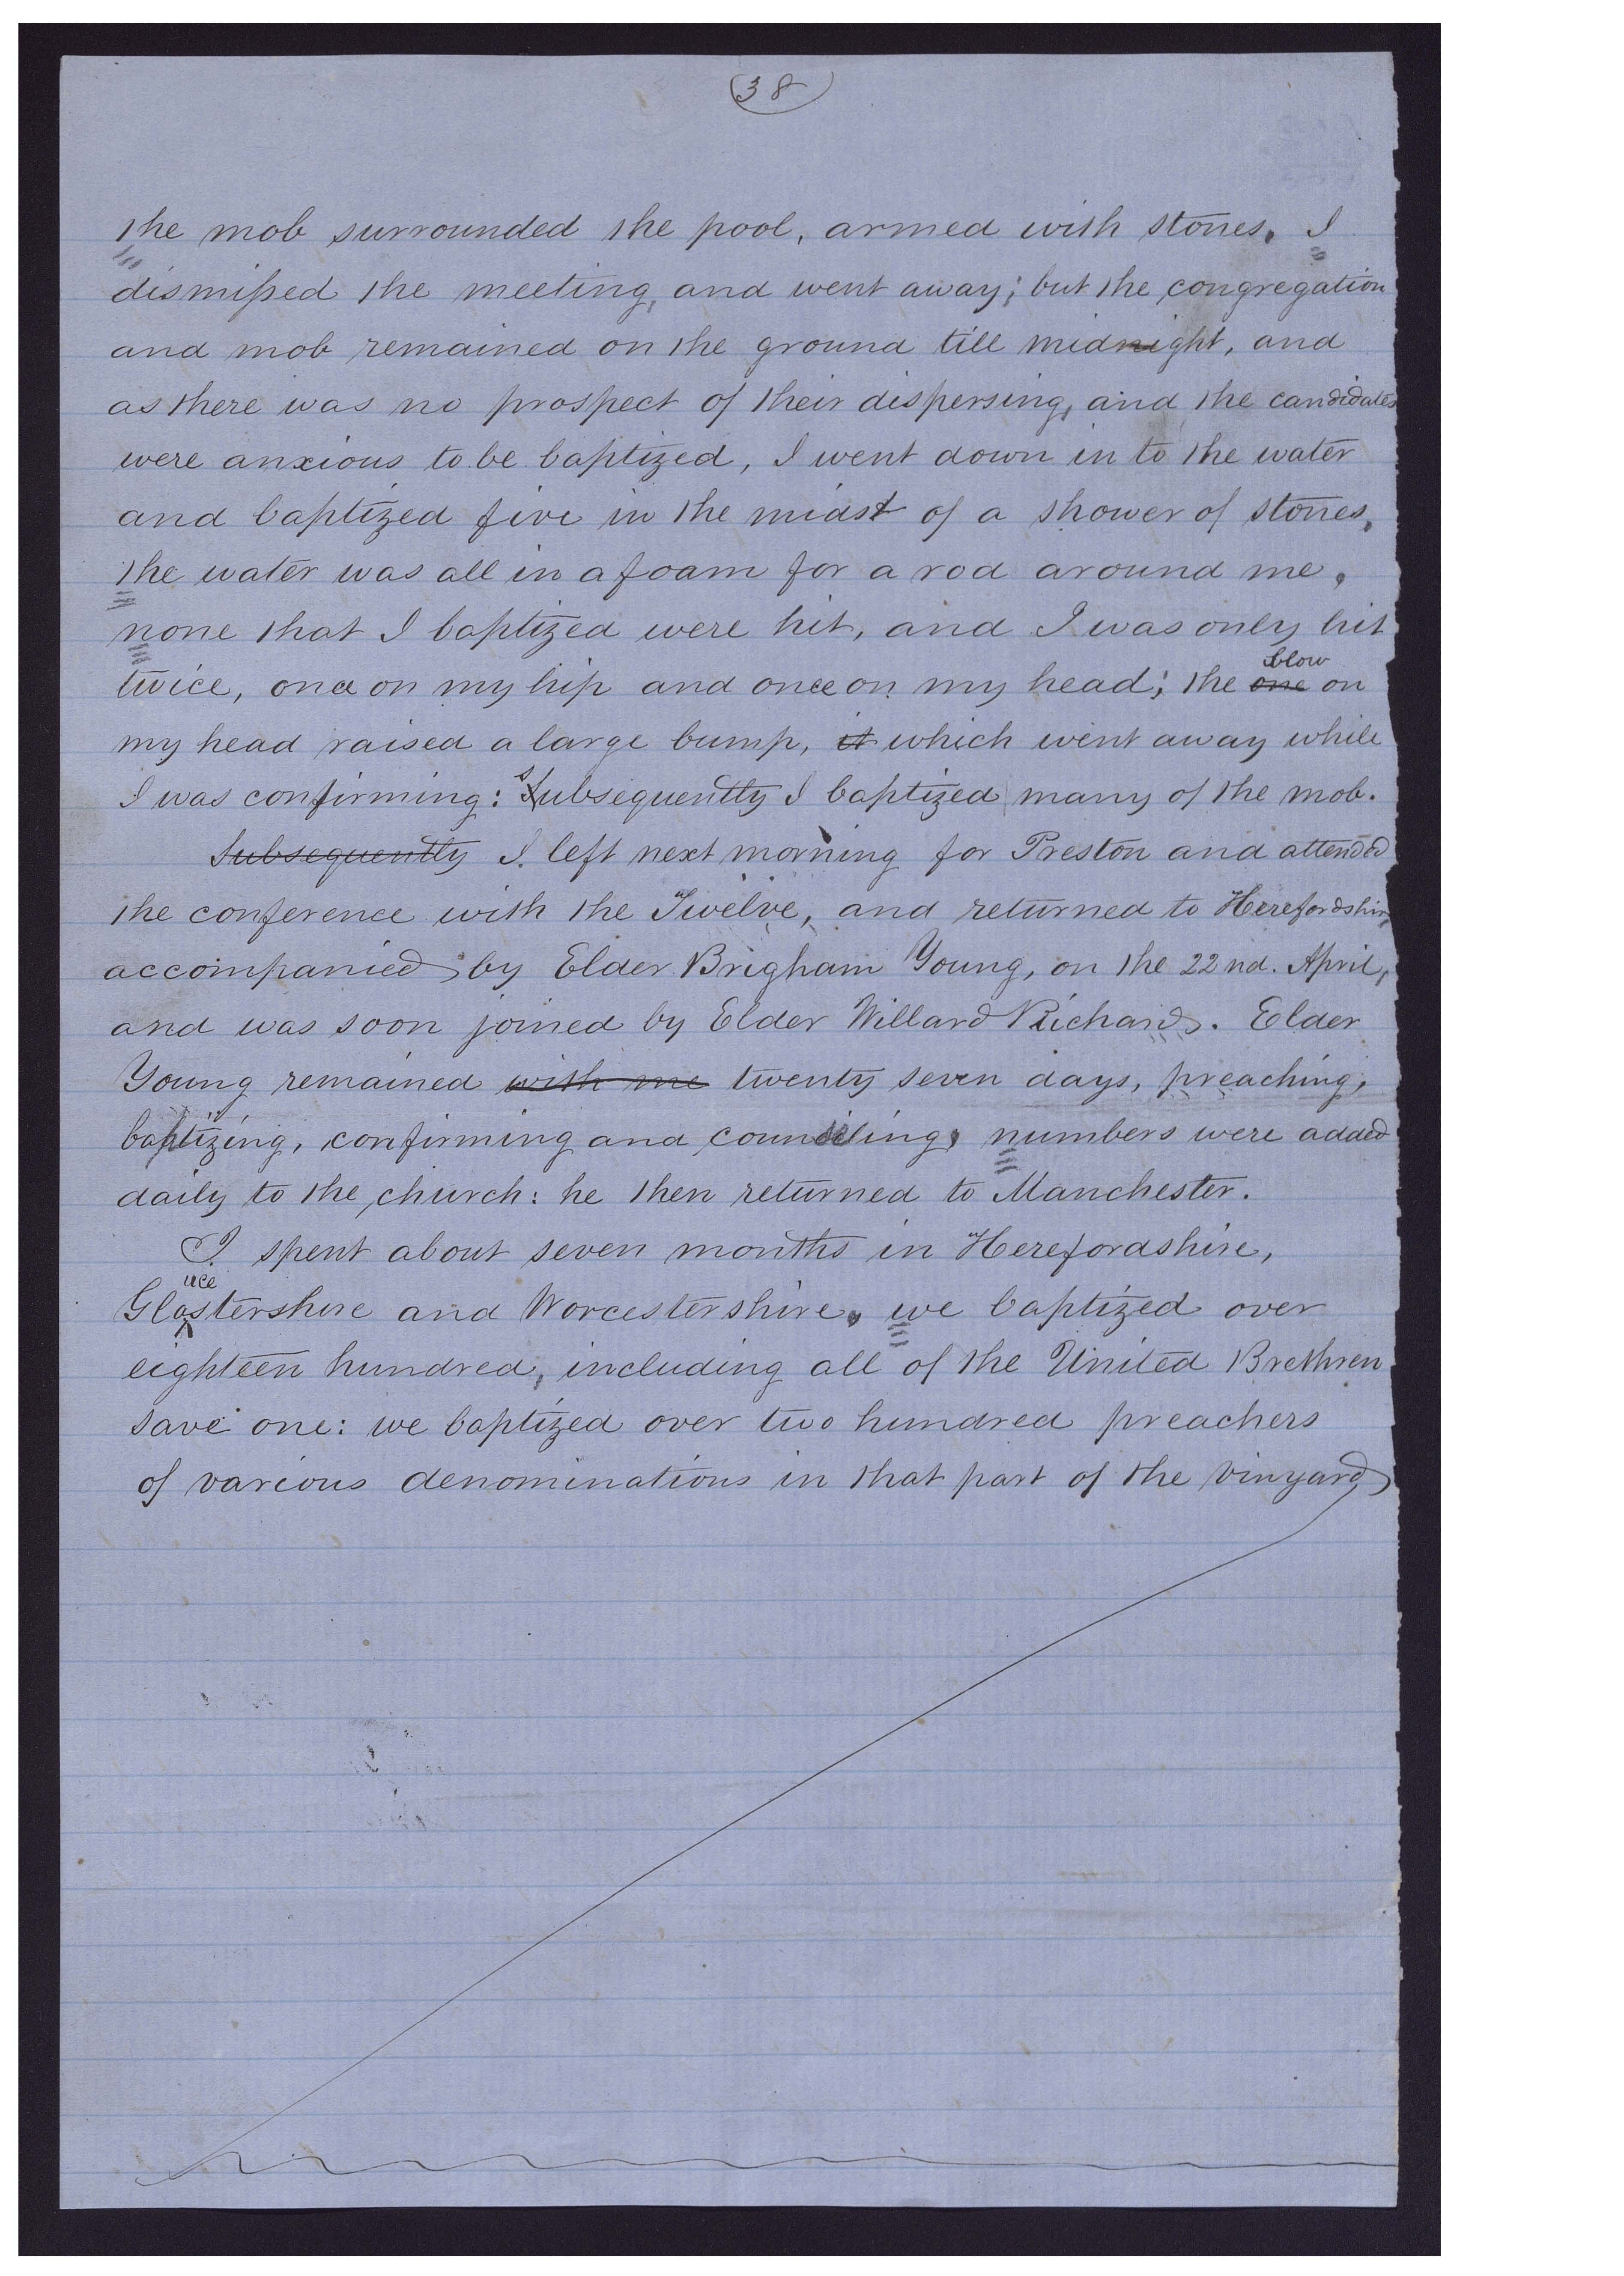 38
the mob surrounded the pool, armed with stones. I
dismissed the meeting, and went away; but the congregation
and mob remained on the ground till midnight, and
as there was no prospect of their dispersing, and the candidates
were anxious to be baptized, I went down in to the water
and baptized five in the midst of a shower of stones,
the water was all in a foam for a rod around me,
none that I baptized were hit, and I was only hit
blow
twice, once on my hip and once on my head; the one on
my head raised a large bump, it which went away while
I was confirming: subsequently I baptized many of the mob.
Subsequently I left next morning for Preston and attended
the conference with the Twelve, and returned to Herefordshire
accompanied by Elder Brigham Young, on the 22nd. April,
and was soon joined by Elder Willard Richards. Elder
Young remained with me twenty seven days, preaching,
baptizing, confirming and counseling, numbers were added
daily to the church: he then returned to Manchester.
I spent about seven months in Herefordshire,
uce
Glostershire and Worcestershire, we baptized over
eighteen hundred, including all of the United Brethren
save one: we baptized over two hundred preachers
of various denominations in that part of the vinyard